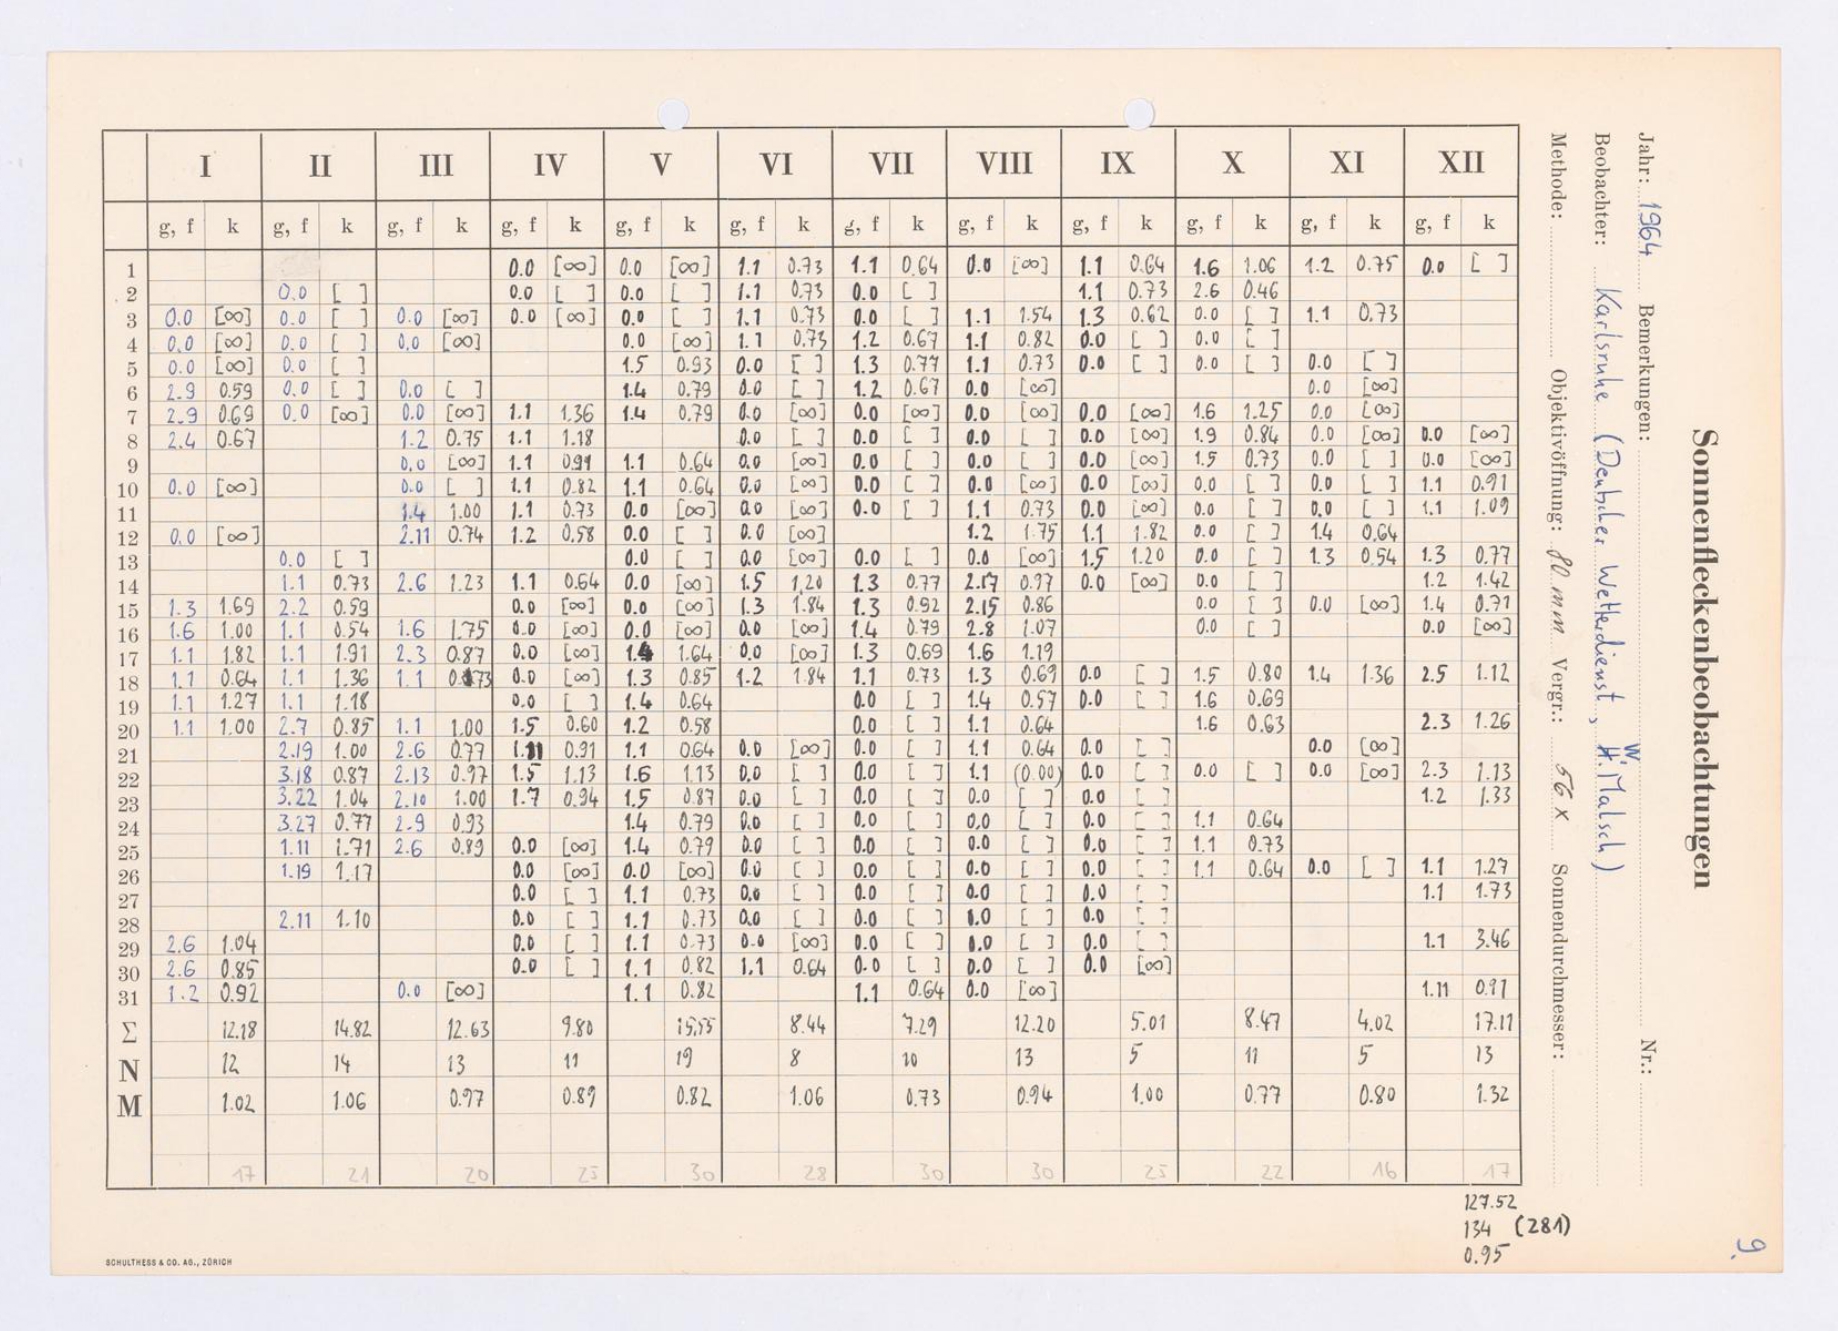 Sonnenfleckenbeobachtungen
Jahr: 1964 Bemerkungen: Nr.:
Beobachter: Karlsruhe (Deutscher Wetterdienst, W. Malsch)
Methode: Objektivöffnung: 80 mm Vergr.: 56 x Sonnendurchmesser:
I II III IV V VI VII VIII IX X XI XII
g, f k g, f k g, f k g, f k g, f k g, f k g, f k g, f k g, f k g, f k g, f k g, f k
1 0.0 [∞] 0.0 [∞] 1.1 0.73 1.1 0.64 0.0 [∞] 1.1 0.64 1.6 1.06 1.2 0.75 0.0 [ ]
2 0.0 [ ] 0.0 [ ] 0.0 [ ] 1.1 0.73 0.0 [ ] 1.1 0.73 2.6 0.46
3 0.0 [∞] 0.0 [ ] 0.0 [∞] 0.0 [∞] 0.0 [ ] 1.1 0.73 0.0 [ ] 1.1 1.54 1.3 0.62 0.0 [ ] 1.1 0.73
4 0.0 [∞] 0.0 [ ] 0.0 [∞] 0.0 [∞] 1.1 0.73 1.2 0.67 1.1 0.82 0.0 [ ] 0.0 [ ]
5 0.0 [∞] 0.0 [ ] 1.5 0.93 0.0 [ ] 1.3 0.77 1.1 0.73 0.0 [ ] 0.0 [ ] 0.0 [ ]
6 2.9 0.59 0.0 [ ] 0.0 [ ] 1.4 0.79 0.0 [ ] 1.2 0.67 0.0 [∞] 0.0 [∞]
7 2.9 0.69 0.0 [∞] 0.0 [∞] 1.1 1.36 1.4 0.79 0.0 [∞] 0.0 [∞] 0.0 [∞] 0.0 [∞] 1.6 1.25 0.0 [∞]
8 2.4 0.67 1.2 0.75 1.1 1.18 0.0 [ ] 0.0 [ ] 0.0 [ ] 0.0 [∞] 1.9 0.84 0.0 [∞] 0.0 [∞]
9 0.0 [∞] 1.1 0.91 1.1 0.64 0.0 [∞] 0.0 [ ] 0.0 [ ] 0.0 [∞] 1.5 0.73 0.0 [ ] 0.0 [∞]
10 0.0 [∞] 0.0 [ ] 1.1 0.82 1.1 0.64 0.0 [∞] 0.0 [ ] 0.0 [∞] 0.0 [∞] 0.0 [ ] 0.0 [ ] 1.1 0.91
11 1.4 1.00 1.1 0.73 0.0 [∞] 0.0 [∞] 0.0 [ ] 1.1 0.73 0.0 [∞] 0.0 [ ] 0.0 [ ] 1.1 1.09
12 0.0 [∞] 2.11 0.74 1.2 0.58 0.0 [ ] 0.0 [∞] 1.2 1.75 1.1 1.82 0.0 [ ] 1.4 0.64
13 0.0 [ ] 0.0 [ ] 0.0 [∞] 0.0 [ ] 0.0 [∞] 1.5 1.20 0.0 [ ] 1.3 0.54 1.3 0.77
14 1.1 0.73 2.6 1.23 1.1 0.64 0.0 [∞] 1.5 1.20 1.3 0.77 2.17 0.97 0.0 [∞] 0.0 [ ] 1.2 1.42
15 1.3 1.69 2.2 0.59 0.0 [∞] 0.0 [∞] 1.3 1.84 1.3 0.92 2.15 0.86 0.0 [ ] 0.0 [∞] 1.4 0.71
16 1.6 1.00 1.1 0.54 1.6 1.75 0.0 [∞] 0.0 [∞] 0.0 [∞] 1.4 0.79 2.8 1.07 0.0 [ ] 0.0 [∞]
17 1.1 1.82 1.1 1.91 2.3 0.87 0.0 [∞] 1.4 1.64 0.0 [∞] 1.3 0.69 1.6 1.19
18 1.1 0.64 1.1 1.36 1.1 0.73 0.0 [∞] 1.3 0.85 1.2 1.84 1.1 0.73 1.3 0.69 0.0 [ ] 1.5 0.80 1.4 1.36 2.5 1.12
19 1.1 1.27 1.1 1.18 0.0 [ ] 1.4 0.64 0.0 [ ] 1.4 0.57 0.0 [ ] 1.6 0.69
20 1.1 1.00 2.7 0.85 1.1 1.00 1.5 0.60 1.2 0.58 0.0 [ ] 1.1 0.64 1.6 0.63 2.3 1.26
21 2.19 1.00 2.6 0.77 1.11 0.91 1.1 0.64 0.0 [∞] 0.0 [ ] 1.1 0.64 0.0 [ ] 0.0 [∞]
22 3.18 0.87 2.13 0.97 1.5 1.13 1.6 1.13 0.0 [ ] 0.0 [ ] 1.1 (0.00) 0.0 [ ] 0.0 [ ] 0.0 [∞] 2.3 1.13
23 3.22 1.04 2.10 1.00 1.7 0.94 1.5 0.87 0.0 [ ] 0.0 [ ] 0.0 [ ] 0.0 [ ] 1.2 1.33
24 3.27 0.77 2.9 0.93 1.4 0.79 0.0 [ ] 0.0 [ ] 0.0 [ ] 0.0 [ ] 1.1 0.64
25 1.11 1.71 2.6 0.89 0.0 [∞] 1.4 0.79 0.0 [ ] 0.0 [ ] 0.0 [ ] 0.0 [ ] 1.1 0.73
26 1.19 1.17 0.0 [∞] 0.0 [∞] 0.0 [ ] 0.0 [ ] 0.0 [ ] 0.0 [ ] 1.1 0.64 0.0 [ ] 1.1 1.27
27 0.0 [ ] 1.1 0.73 0.0 [ ] 0.0 [ ] 0.0 [ ] 0.0 [ ] 1.1 1.73
28 2.11 1.10 0.0 [ ] 1.1 0.73 0.0 [ ] 0.0 [ ] 0.0 [ ] 0.0 [ ]
29 2.6 1.04 0.0 [ ] 1.1 0.73 0.0 [∞] 0.0 [ ] 0.0 [ ] 0.0 [ ] 1.1 3.46
30 2.6 0.85 0.0 [ ] 1.1 0.82 1.1 0.64 0.0 [ ] 0.0 [ ] 0.0 [∞]
31 1.2 0.92 0.0 [∞] 1.1 0.82 1.1 0.64 0.0 [∞] 1.11 0.91
Σ 12.18 14.82 12.63 9.80 15.55 8.44 7.29 12.20 5.01 8.47 4.02 17.11
N 12 14 13 11 19 8 10 13 5 11 5 13
M 1.02 1.06 0.97 0.89 0.82 1.06 0.73 0.94 1.00 0.77 0.80 1.32
17 21 20 25 30 28 30 30 25 22 16 17
127.52
134 (281)
0.95
9.
SCHULTHESS & CO. AG., ZÜRICH